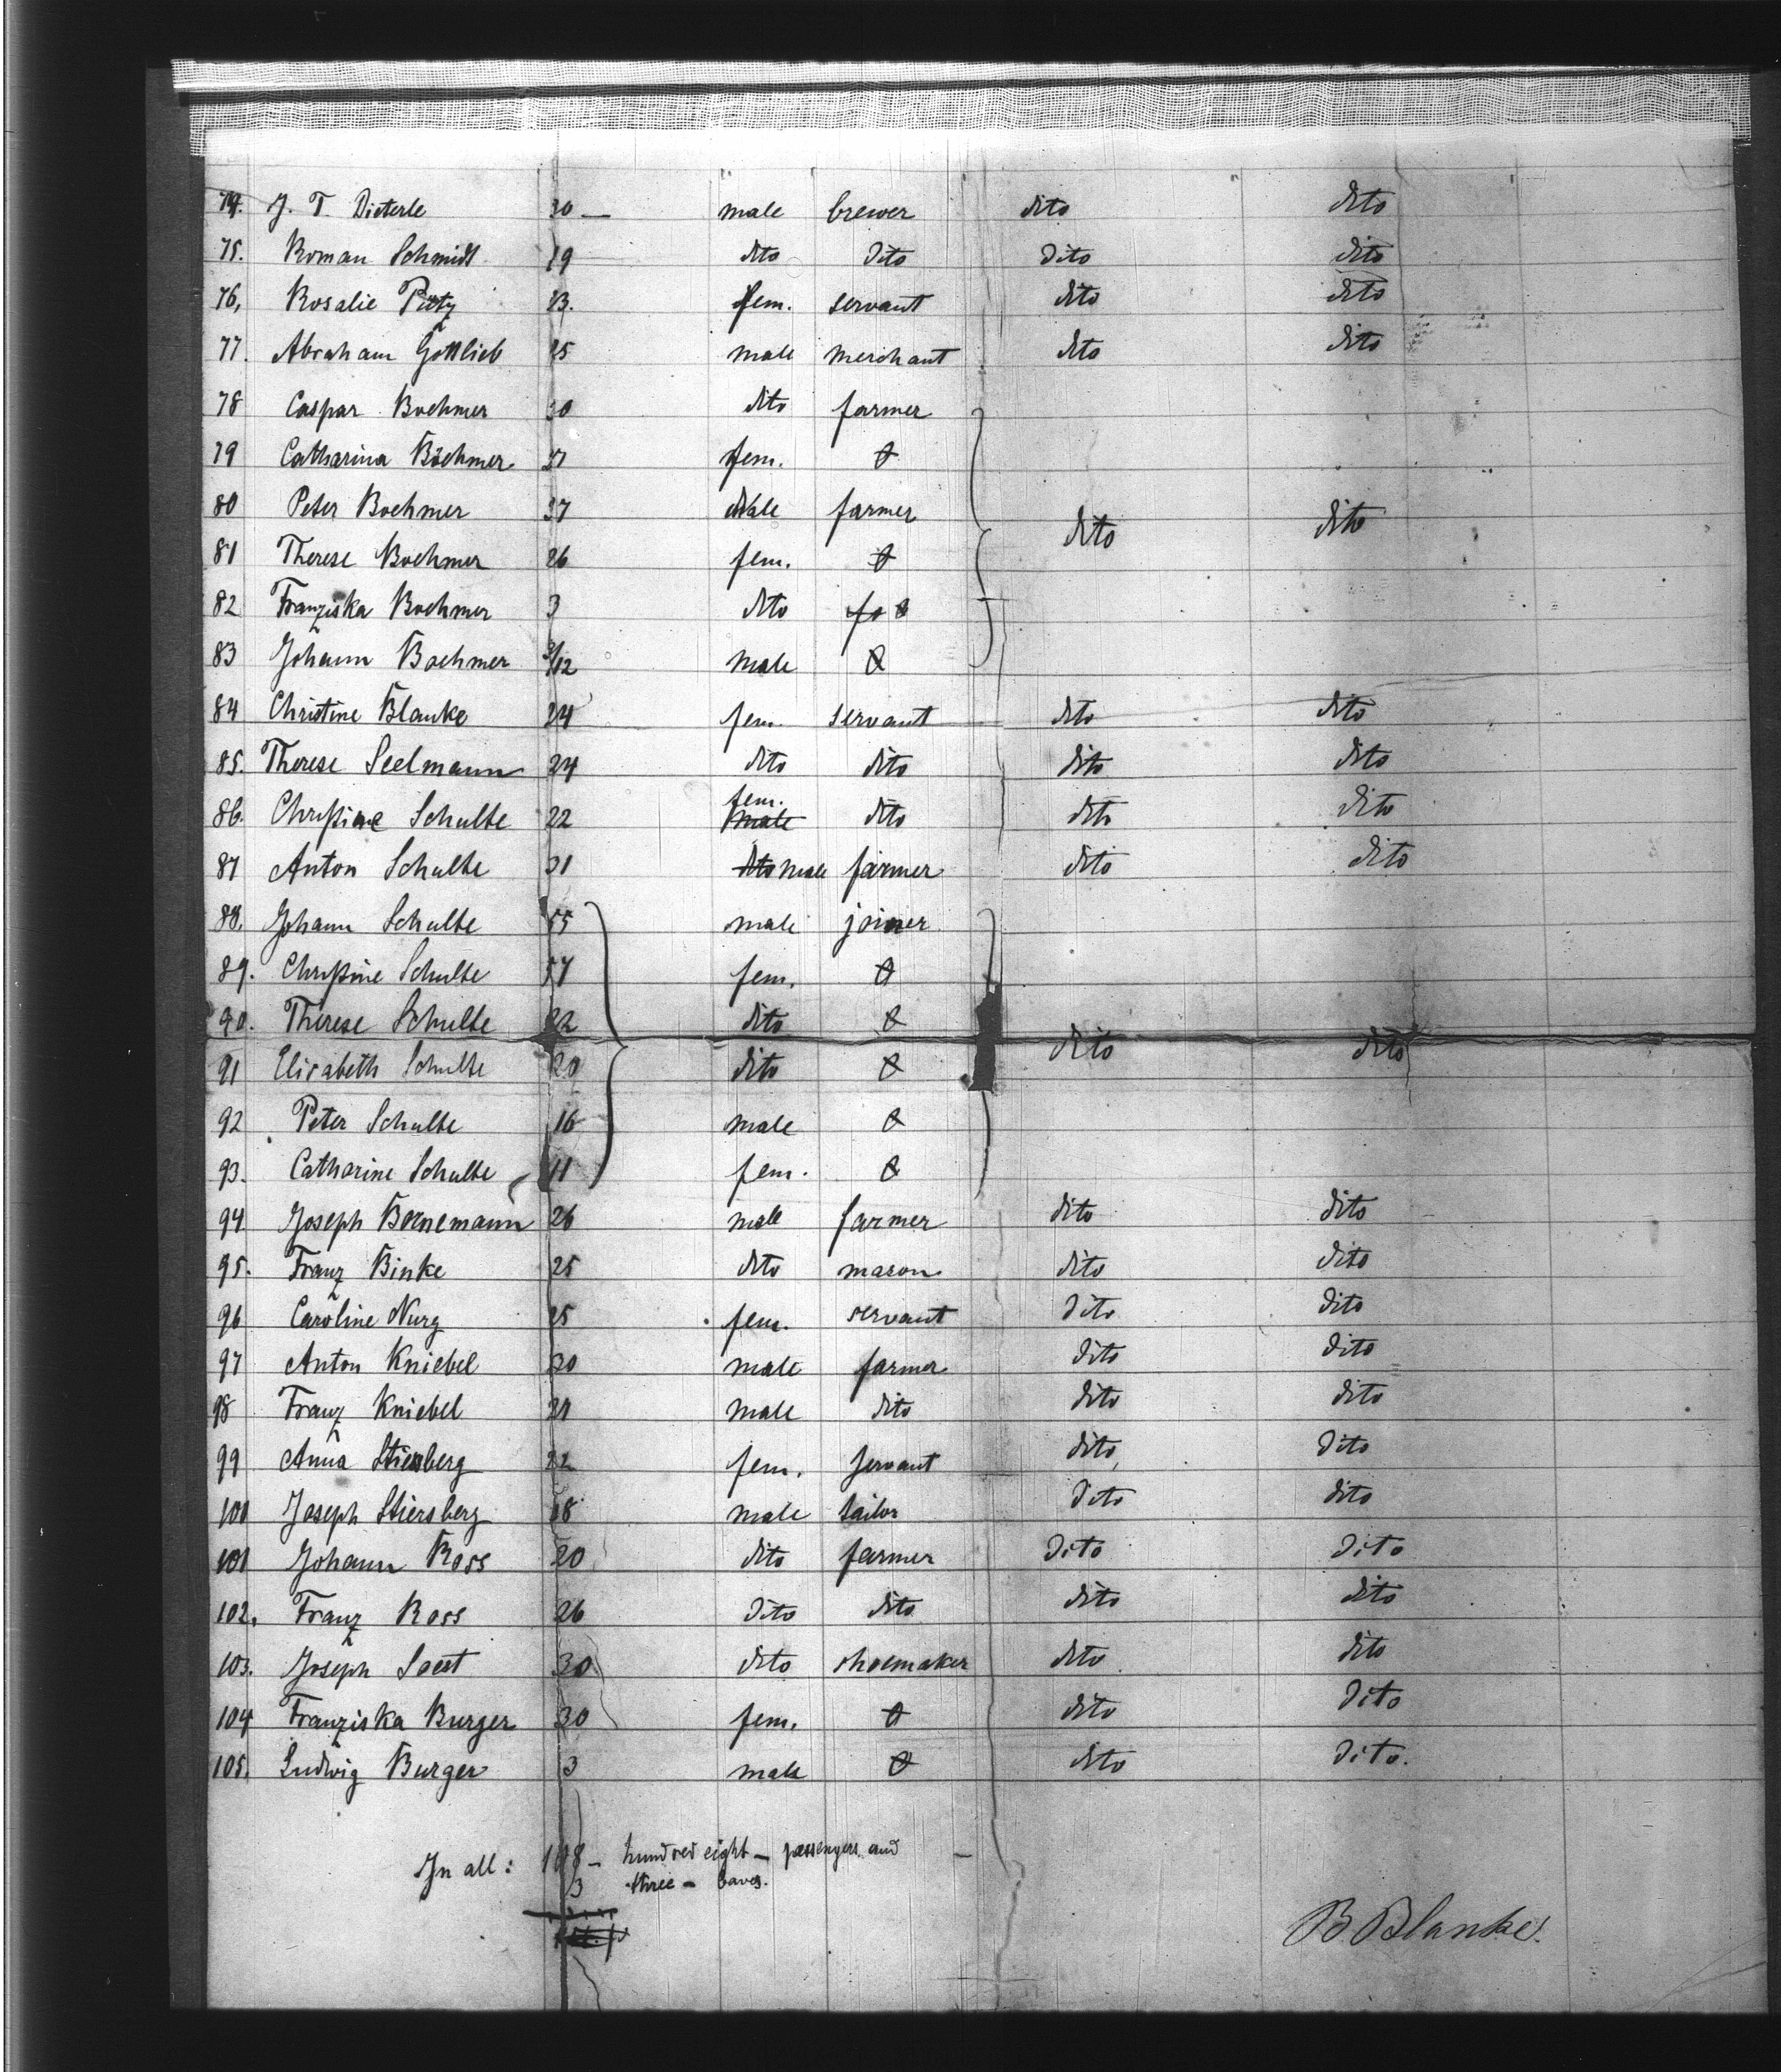 74. J. T. Dieterle 30 — male brewer dito dito
75. Roman Schmidt 19 dito dito dito dito
76, Rosalie fem. servant dito dito
77. Abraham Gottlieb 25 male merchant dito dito
78 Caspar Boehmer 30 dito farmer
79 Catharina Böhmer fem. 0
80 Peter Boehmer 37 male farmer dito dito
81 Therese Boehmer 26 fem. 0
82 Franziska Boehmer 3 dito 0
83 Johann Boehmer /12 male 0
84 Christine Blanke 24 fem. servant dito dito
85. Therese Seelmann 24 dito dito dito dito
86. Christine Schulte 22 fem. male dito dito dito
87 Anton Schulte 31 dito male farmer dito dito
88. Johann Schulte 55 male joiner
89. Christine Schulte 57 fem. 0
90. Therese Schulte 22 dito 0
91 Elisabeth Schulte 20 dito 0 dito dito
92 Peter Schulte 16 male 0
93. Catharine Schulte 11 fem. 0
94 Joseph Bornemann 26 male farmer dito dito
95. Franz Binke 25 dito mason dito dito
96 Caroline Nurg 25 fem. servant dito dito
97 Anton Kniebel 30 male farmer dito dito
98 Franz Kniebel male dito dito dito
99 Anna Stiersberg 22 fem. servant dito dito
100 Joseph Stiersberg 18 male tailor dito dito
101 Johann Ross 20 dito farmer dito dito
102. Franz Ross 26 dito dito dito dito
103. Joseph Soest 30 dito shoemaker dito dito
104 Franziska Burger 30 fem. 0 dito dito
105. Ludwig Burger 3 male 0 dito dito.
In all: 108 — hundred eight — passengers and —
3 three —
B Blanke.